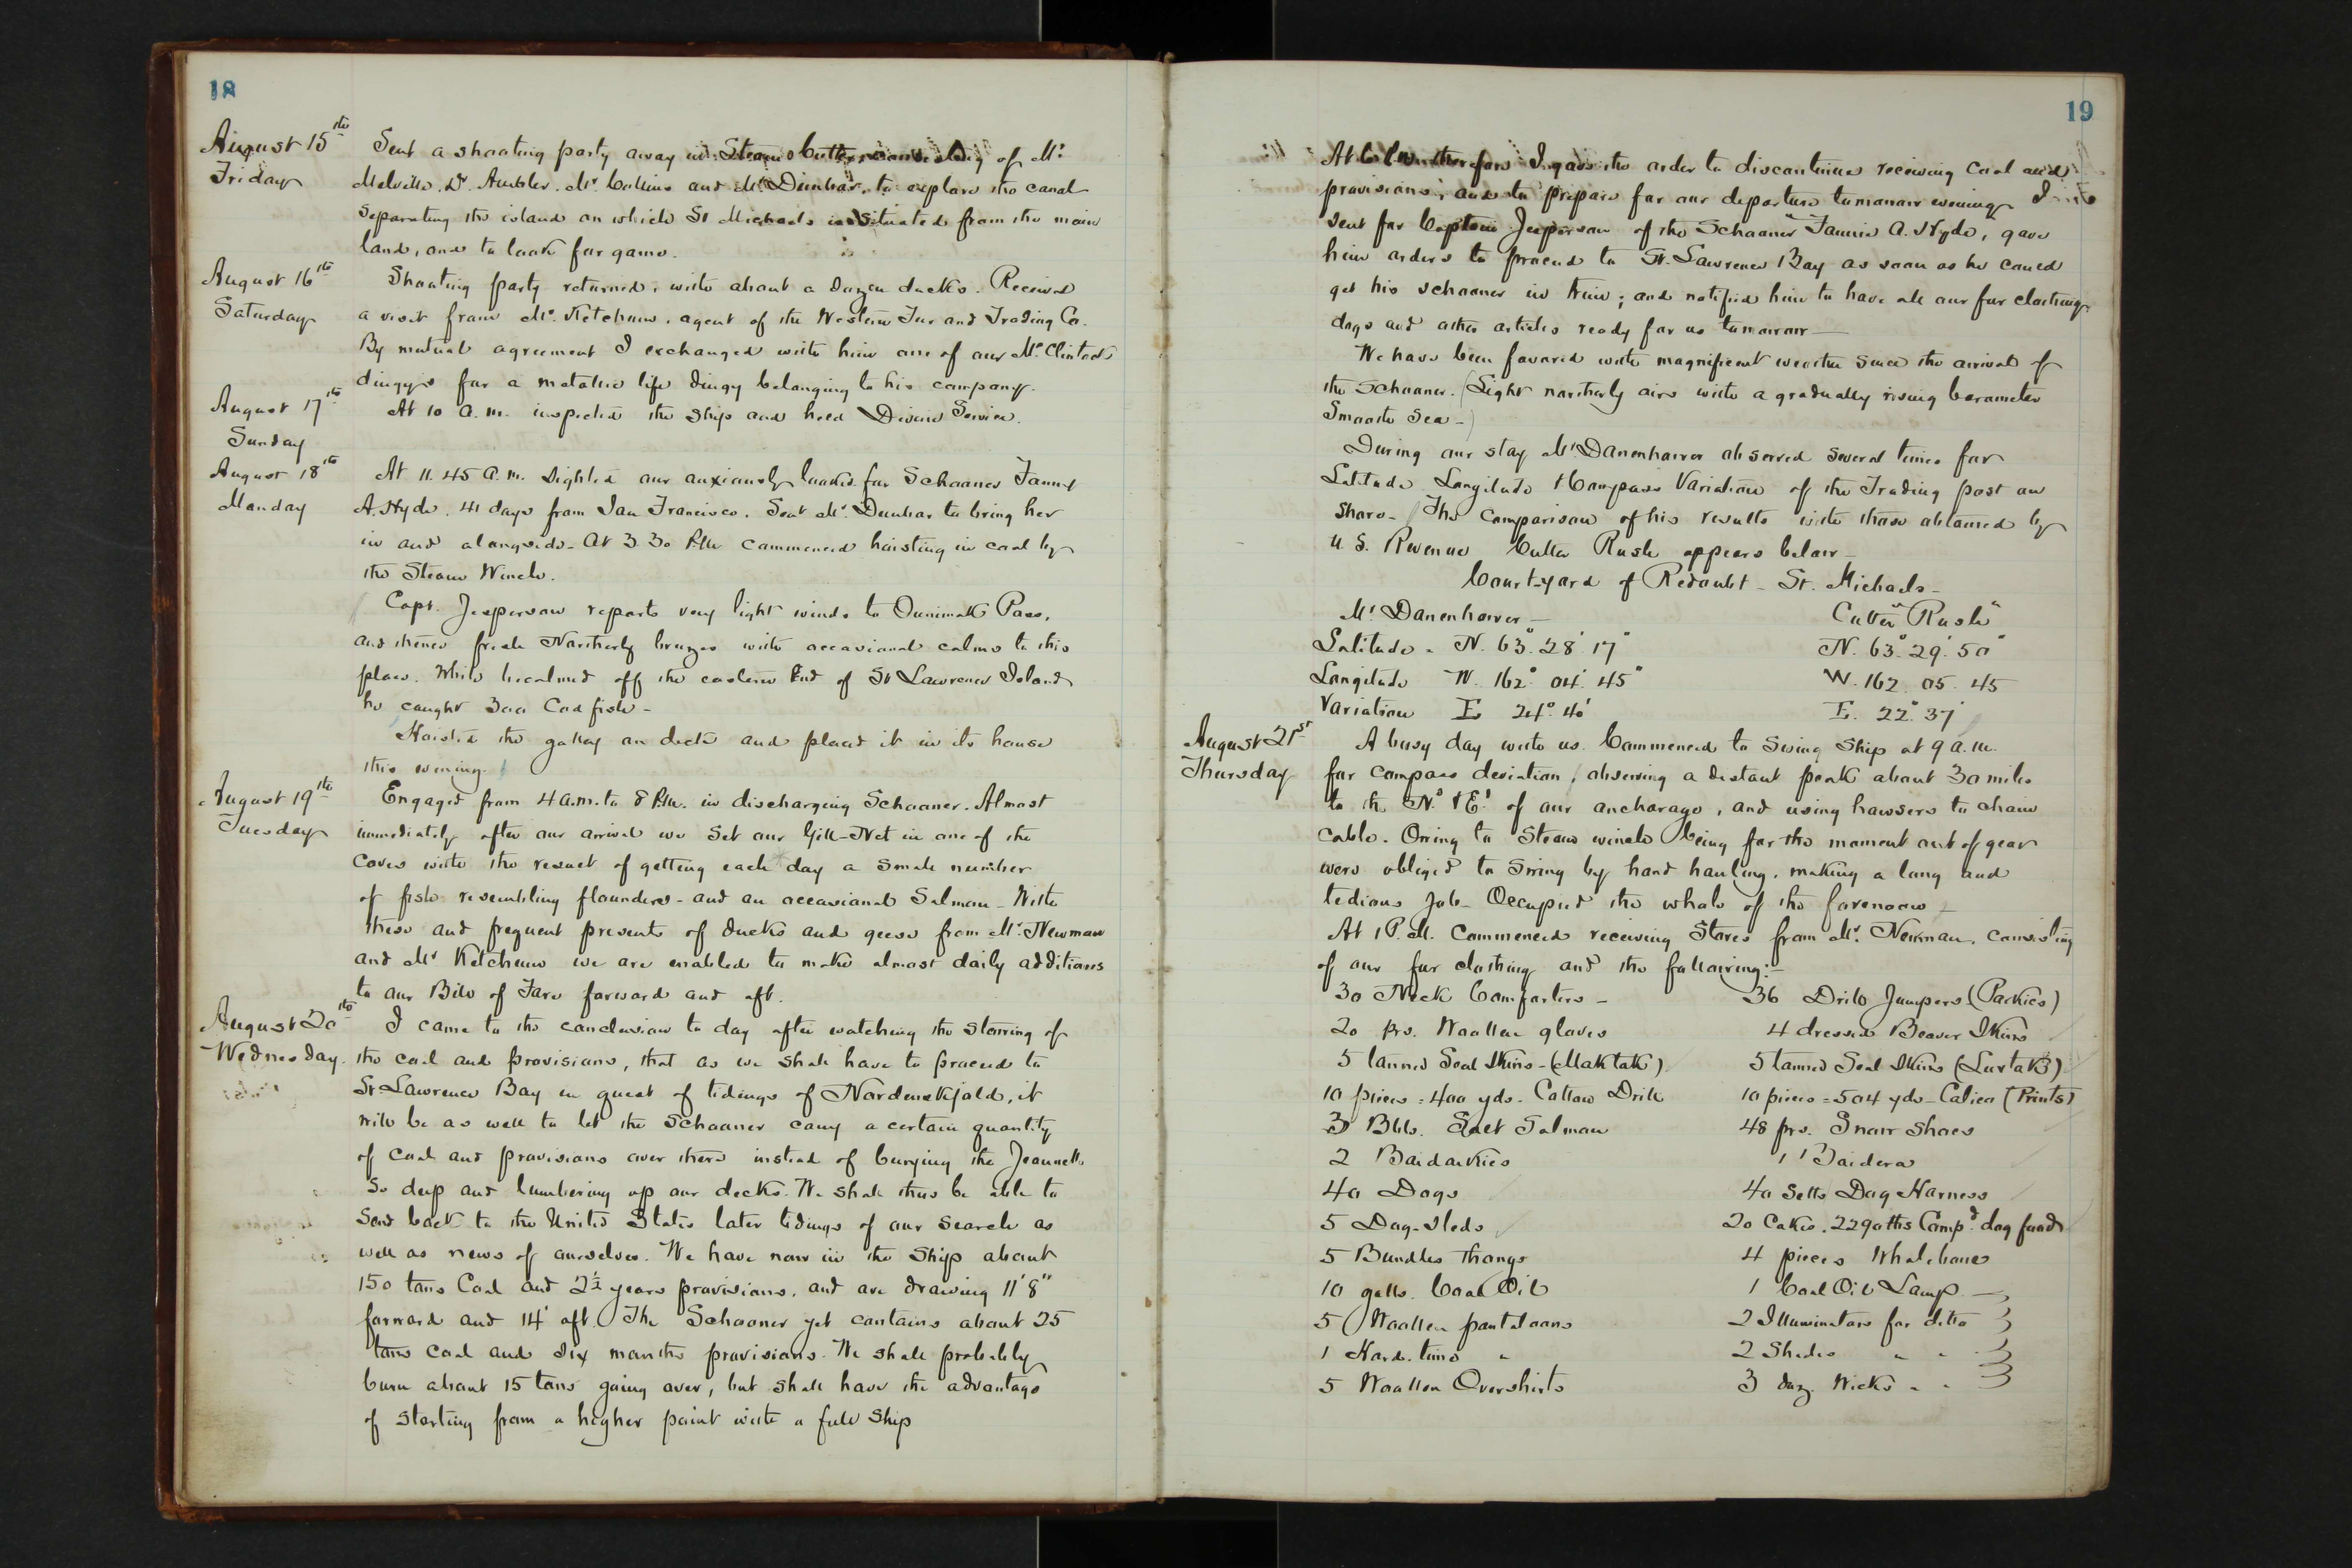 18
August 15th
Friday
Sent a shooting party away in Steam Cutter consisting of Mr.
Melville. Dr. Ambler. Mr. Collins and Mr. Dunbar, to explore the canal
separating the island on which St Michaels is situated from the main
land, and to look for game.
August 16th
Saturday
Shooting party returned, with about a dozen ducks. Received
a visit from Mr. Ketchum, agent of the Western Fur and Trading Co.
By mutual agreement I exchanged with him one of our McClintock
dingys for a metallic life dingy belonging to his company.
August 17th
Sunday
At 10 a.m. inspected the ship and held Divine Service.
August 18th
Monday
At 11.45 a.m. sighted our anxiously looked for Schooner Fanny
A. Hyde. 41 days from San Francisco. Sent Mr. Dunbar to bring her
in and alongside. At 3.30 P.M. commenced hoisting in coal by
the Steam Winch.
Capt. Jesperson reports very light winds to Ounimak Pass,
and thence fresh Northerly breezes with occasional calms to this
place. While becalmed off the eastern End of St Lawrence Island
he caught 300 Cod fish -
Hoisted the galley on deck and placed it in its house
this evening.
August 19th
Tuesday
Engaged from 4 a.m. to 8 P.M. in discharging Schooner. Almost
immediately after our arrival we set our Gill-Net in one of the
coves with the result of getting each day a small number
of fish resembling flounders - and an occasional Salmon - With
these and frequent presents of ducks and geese from Mr. Newman
and Mr Ketchum we are enabled to make almost daily additions
to our Bill of Fare forward and aft.
August 20th
Wednesday.
I came to the conclusion to day after watching the storing of
the coal and provisions, that as we shall have to proceed to
St Lawrence Bay in quest of tidings of Nordenskjold, it
will be as well to let the Schooner carry a certain quantity
of coal and provisions over there instead of burying the Jeannette
so deep and lumbering up our decks. We shall thus be able to
send back to the United States later tidings of our search as
well as news of ourselves. We have now in the ship about
150 tons Coal and 2½ years provisions, and are drawing 11' 8"
forward and 14' aft. The Schooner yet contains about 25
tons coal and six months provisions. We shall probably
burn about 15 tons going over, but shall have the advantage
of starting from a higher point with a full ship
19
At therefore I gave the order to discontinue receiving Coal and
provisions, and to prepare for our departure tomorrow evening. I
sent for Captain Jesperson of the Schooner "Fannie A. Hyde, gave
him orders to proceed to St. Lawrence Bay as soon as he could
get his schooner in trim; and notified him to have all our fur clothing
dogs and other articles ready for us tomorrow -
We have been favored with magnificent weather since the arrival of
the Schooner. (Light northerly airs with a gradually rising barometer
Smooth Sea -)
During our stay Mr Danenhower observed several times for
Latitude Longitude & Compass Variation of the Trading post on
shore - The comparison of his results with those obtained by
U.S. Revenue Cutter Rush appears below -
Court-yard of Redoubt - St. Michaels -
Mr Danenhower - Cutter "Rush"
Latitude - N. 63° 28' 17" N. 63° 29' 50"
Longitude W. 162° 04' 45" W. 162. 05. 45
Variation E 24° 40' E. 22° 37'
August 21st
Thursday
A busy day with us. Commenced to swing Ship at 9 a.m.
for compass deviation, observing a distant peak about 30 miles
to the Nd & Ed of our anchorage, and using hawsers to chain
cable. Owing to Steam winch being for the moment out of gear
were obliged to swing by hand hauling, making a long and
tedious job - Occupied the whole of the forenoon -
At 1 P.M. Commenced receiving Stores from Mr. Newman, consisting
of our fur clothing and the following:-
30 Neck Comforters - 36 Drill Jumpers (Parkies)
20 prs. Woollen gloves 4 dressed Beaver Skins
5 tanned Seal Skins - (Maktak) 5 tanned Seal Skins (Lurtak)
10 pieces = 400 yds. Cotton Drill 10 pieces = 504 yds - Calico (Prints)
3 Bbls. Salt Salmon 48 prs. Snow Shoes
2 Baidarkies 1 Baidera
40 Dogs 40 Setts Dog Harness
5 Dog-Sleds 20 Cakes. 2290 lbs Comp'd dog food
5 Bundles Thongs 4 pieces Whalebone
10 galls. Coal Oil 1 Coal Oil Lamp -
5 Woollen pantaloons 2 Illuminators for ditto
1 " 2 Shades " "
5 Woollen Overshirts 3 doz. Wicks " "